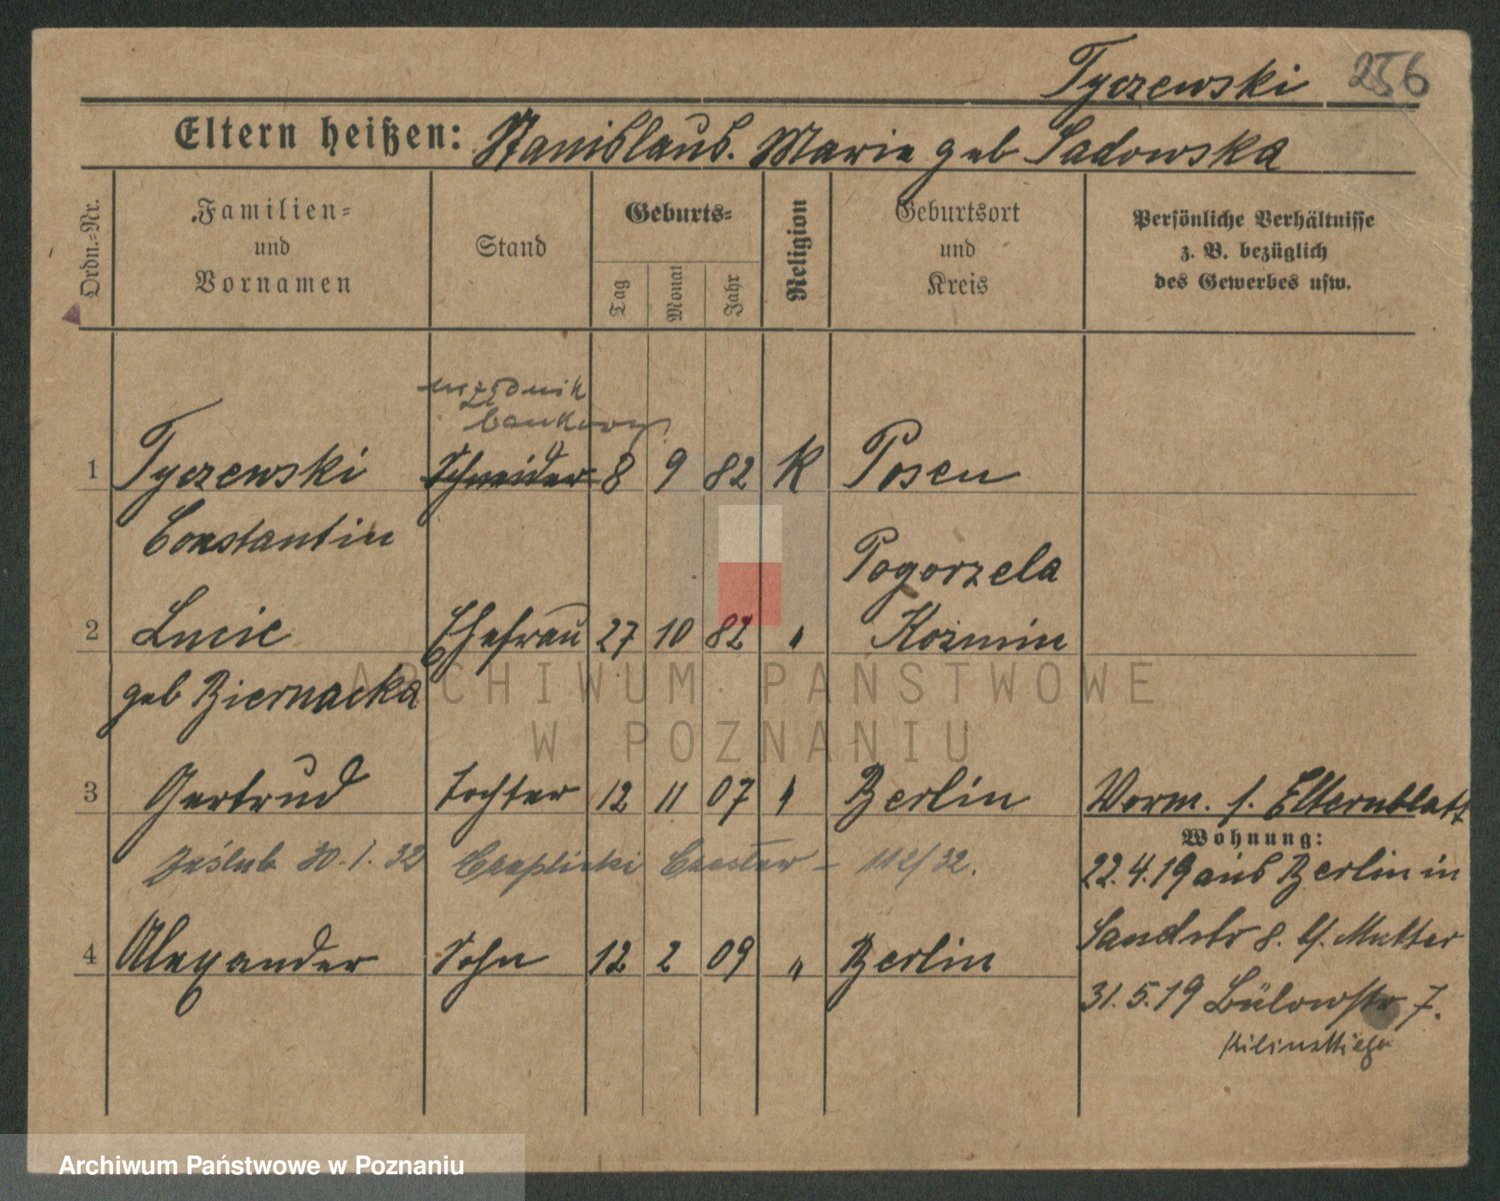 Tyczewski 256
Eltern heißen: Stanislaus. Marie geb Sadowska
Ordn.-Nr.
Familien-
und
Vornamen
Stand
Geburts-
Tag
Monat
Jahr
Religion
Geburtsort
und
Kreis
Persönliche Verhältnisse
z. B. bezüglich
des Gewerbes usw.
urzędnik
bankowy
1 Tyczewski Schneider 8 9 82 K Posen
Constantin
Pogorzela
2 Lucie Ehefrau 27 10 82 " Kozmin
geb Biernacka
ARCHIWUM PAŃSTWOWE
W POZNANIU
3 Gertrud Tochter 12 11 07 " Berlin Worm. s. Elternblatt
Wohnung:
zaślub. 30.1.32 Czeplicki 112/32.
22.4.19 aus Berlin in
Sandstr 8. b/. Mutter
4 Alexander Sohn 12 2 09 " Berlin
31.5.19 Bülowstr 7.
Kilinskiego
Archiwum Państwowe w Poznaniu